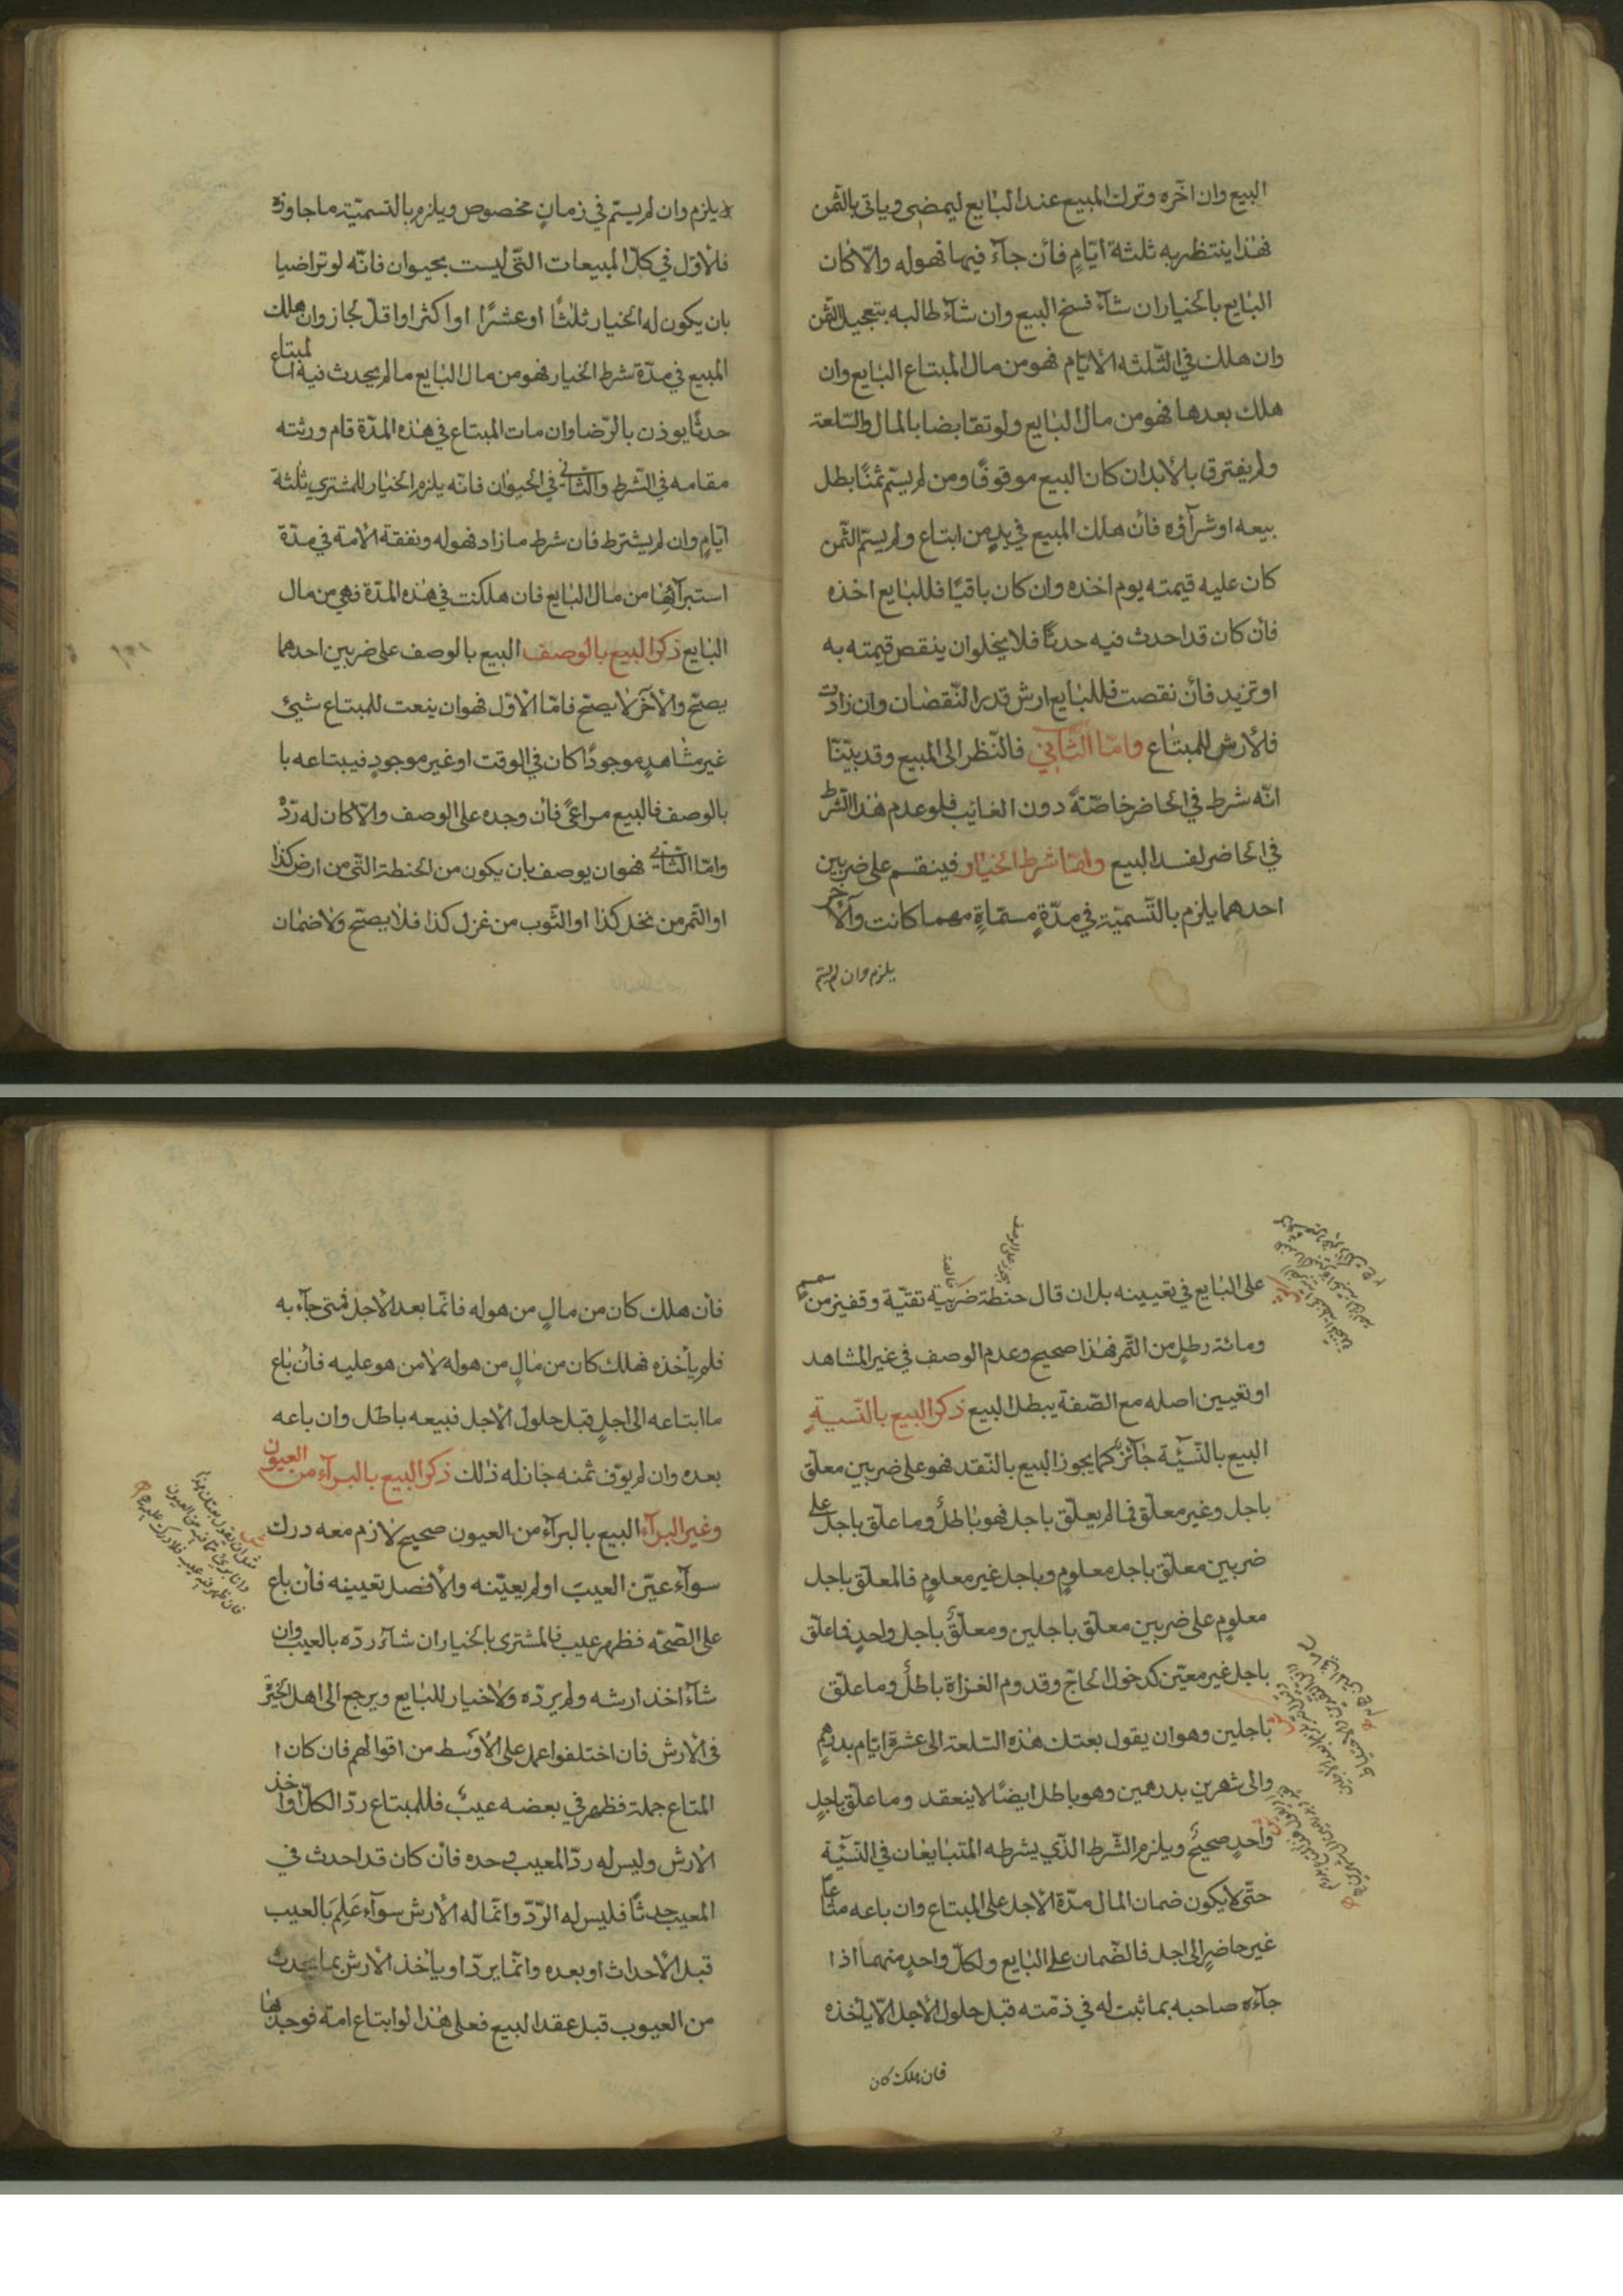 البيع وان اخّره وترك المبيع عند البايع ليمضى وياتى بالثّمن
فهذا ينتظر به ثلثة ايّامٍ فأن جآء فيها فهو له والّا كان
البايع بالخيار ان شآء فسخ البيع وان شآء طالبه بتعجيل الثّمن
وان هلك في الثّلثه الأيّام فهو من مال المبتاع البايع وان
هلك بعدها فهو من مال البايع ولو تقابضا بالمال والسّلعة
ولم يفترق بالأبدان كان البيع موقوفًا ومن لم يسّم ثمنًا بطل
بيعه او شرآؤه فأن هلك المبيع في يدٍ من ابتاع ولم يسّم الثّمن
كان عليه قيمته يوم اخذه وان كان باقيًا فللبايع اخذه
فأن كان قد احدث فيه حدثًا فلا يخلوا ن ينقص قيمته به
او تزيد فأن نقصت فللبايع ارش قدر النّقصان وان زادت
فلأرش للمبتاع وامّا الثّاني فالنّظر الى المبيع وقد بيّنّا
انّه شرط في الحاضر خاصّتةً دون الغائب فلو عدم هذا الشرط
في الحاضر لفسد البيع وامّا شرط الخيار فينقسم على ضربين
احدهما يلزم بالتّسميّة في مدّةٍ مسمّاةٍ مهما كانت والأخر
يلزم وان لم يسّم
يلزم وان لم يسّم في زمانٍ مخصوص ويلزم بالتسميّة ما جاوزه
فلأوّل في كلّ المبيعات التّى ليست بحيوان فانّه لو تراضيا
بان يكون له الخيار ثلثًا او عشرًا او اكثر او اقلّ لجاز وان هلك
المبيع في مدّة شرط الخيار فهو من مال البايع ما لم يحدث فيه المبتاع
حدثًا يوذن بالرّضا وان مات المبتاع في هذه المدّة قام ورثته
مقامه في الشّرط والثّاني في الحيوان فانّه يلزم الخيار للمشتري ثلثة
ايّامٍ وان لم يشترط فان شرط ما زاد فهو له ونفقة الأمة في مدّة
استبرآئها من مال البايع فان هلكت في هذه المدّة فهي من مال
البايع ذكر البيع بالوصف البيع بالوصف على ضربين احدهما
يصحّ والأخر لا يصحّ فامّا الأوّل فهو ان ينعت للمبتاع شيئ
غير مشاهدٍ موجودًا كان في الوقت او غير موجودٍ فيبتاعه با
بالوصف فالبيع مراعىً فأن وجده على الوصف والّا كان له ردّه
وامّا الثّاني فهو ان يوصف بان يكون من الحنطة التّى من ارض كذا
او التّمر من نخل كذا او الثّوب من غزل كذا فلا يصحّ ولا ضمان
على البايع في تعيينه بل ان قال حنطة ضربية نقيّة وقفيز من سمسمٍ
ومائة رطلٍ من التّمر فهذا صحيح وعدم الوصف في غير المشاهد
او تعيين اصله مع الصّفة يبطل البيع ذكر البيع بالنّسية
البيع بالنّسيّة جآئز كما يجوز البيع بالنّقد فهو على ضربين معلّق
باجل وغير معلّق فما لم يعلّق باجل فهو باطل وما علّق باجل على
ضربين معلّق باجل معلومٍ وباجل غير معلومٍ فالمعلّق باجل
معلومٍ على ضربين معلّق باجلين ومعلّق باجلٍ واحدٍ فما علّق
باجل غير معيّن كدخول الحاجّ وقدوم الغزاة باطل وما علّق
باجلين وهو ان يقول بعتك هذه السّلعة الى عشرة ايّام بدرهمٍ
والى شهرين بدرهمين وهو باطل ايضًا لا ينعقد وما علّق باجلٍ
واحدٍ صحيح ويلزم الشّرط الّذي يشرطه المتبايعان في النّسيّة
حتّى لا يكون ضمان المال مدّة الأجل على المبتاع وان باعه متاعًا
غير حاضرٍ الى اجل فالضّمان على البايع ولكلّ واحدٍ منهما اذا
جآءه صاحبه بما ثبت له في ذمّته قبل حلول الأجل الّا يأخذه
فان هلك كان
فأن هلك كان من مالٍ من هو له فانّما بعد الأجل فمتى جآء به
فلم يأخذه فهلك كان من مالٍ من هو له لا من هو عليه فأن باع
ما ابتاعه الى اجلٍ قبل حلول الأجل فبيعه باطل وان باعه
بعده وان لم يوّف ثمنه جاز له ذلك ذكر البيع بالبرآءة من العيوب
وغير البرآءة البيع بالبرآءة من العيون صحيح لا زم معه درك
سوآء عيّن العيب او لم يعيّنه والأفصل تعيينه فأن باع
على الصّحّة فظهر عيب فالمشترى بالخيار ان شآء ردّه بالعيب وان
شآء اخذ ارشه ولم يردّه ولا خيار للبايع ويرجع الى اهل الخبرة
فى الأرش فان اختلفوا عمل على الأوسط من اقوالهم فان كان ا
المتاع جملة فظهر في بعضه عيب فللمبتاع ردّ الكلّ او اخذ
الأرش وليس له ردّ المعيب وحده فأن كان قد احدث في
المعيب حدثًا فليس له الرّدّ وانّما له الأرش سوآء عَلِمَ بالعيب
قبل الأحداث او بعده وانّما يردّ او يأخذ الأرش بما يحدث
من العيوب قبل عقد البيع فعلى هذا لو ابتاع امة فوجدها